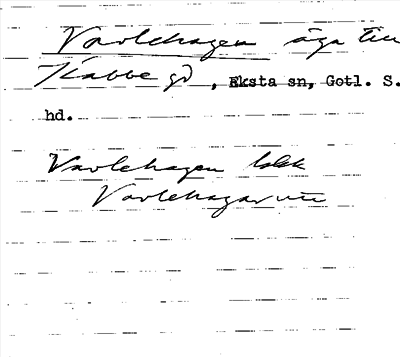 Varlehagen äga till
Kabbe gd, Eksta sn, Gotl. S.
hd.
Varlehagen
Varlehagarna